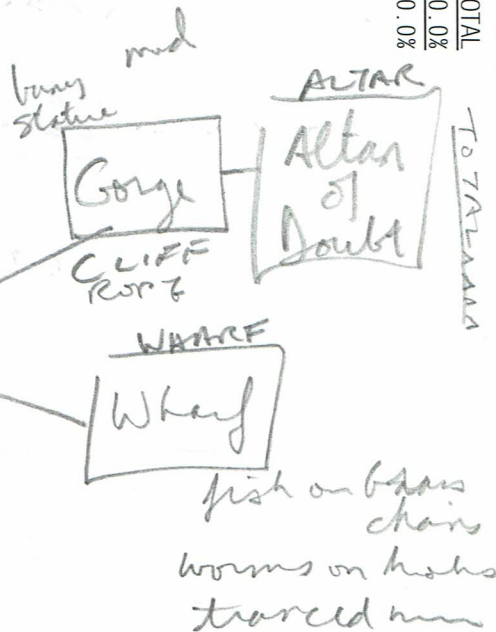 OTAL
0.0%
0.0%
mud
bunny
statue
ALTAR
Gorge
Altar
of
Doubt
CLIFF
ROPE
WHARF
Wharf
fish on brass
chains
worms on hooks
tranced